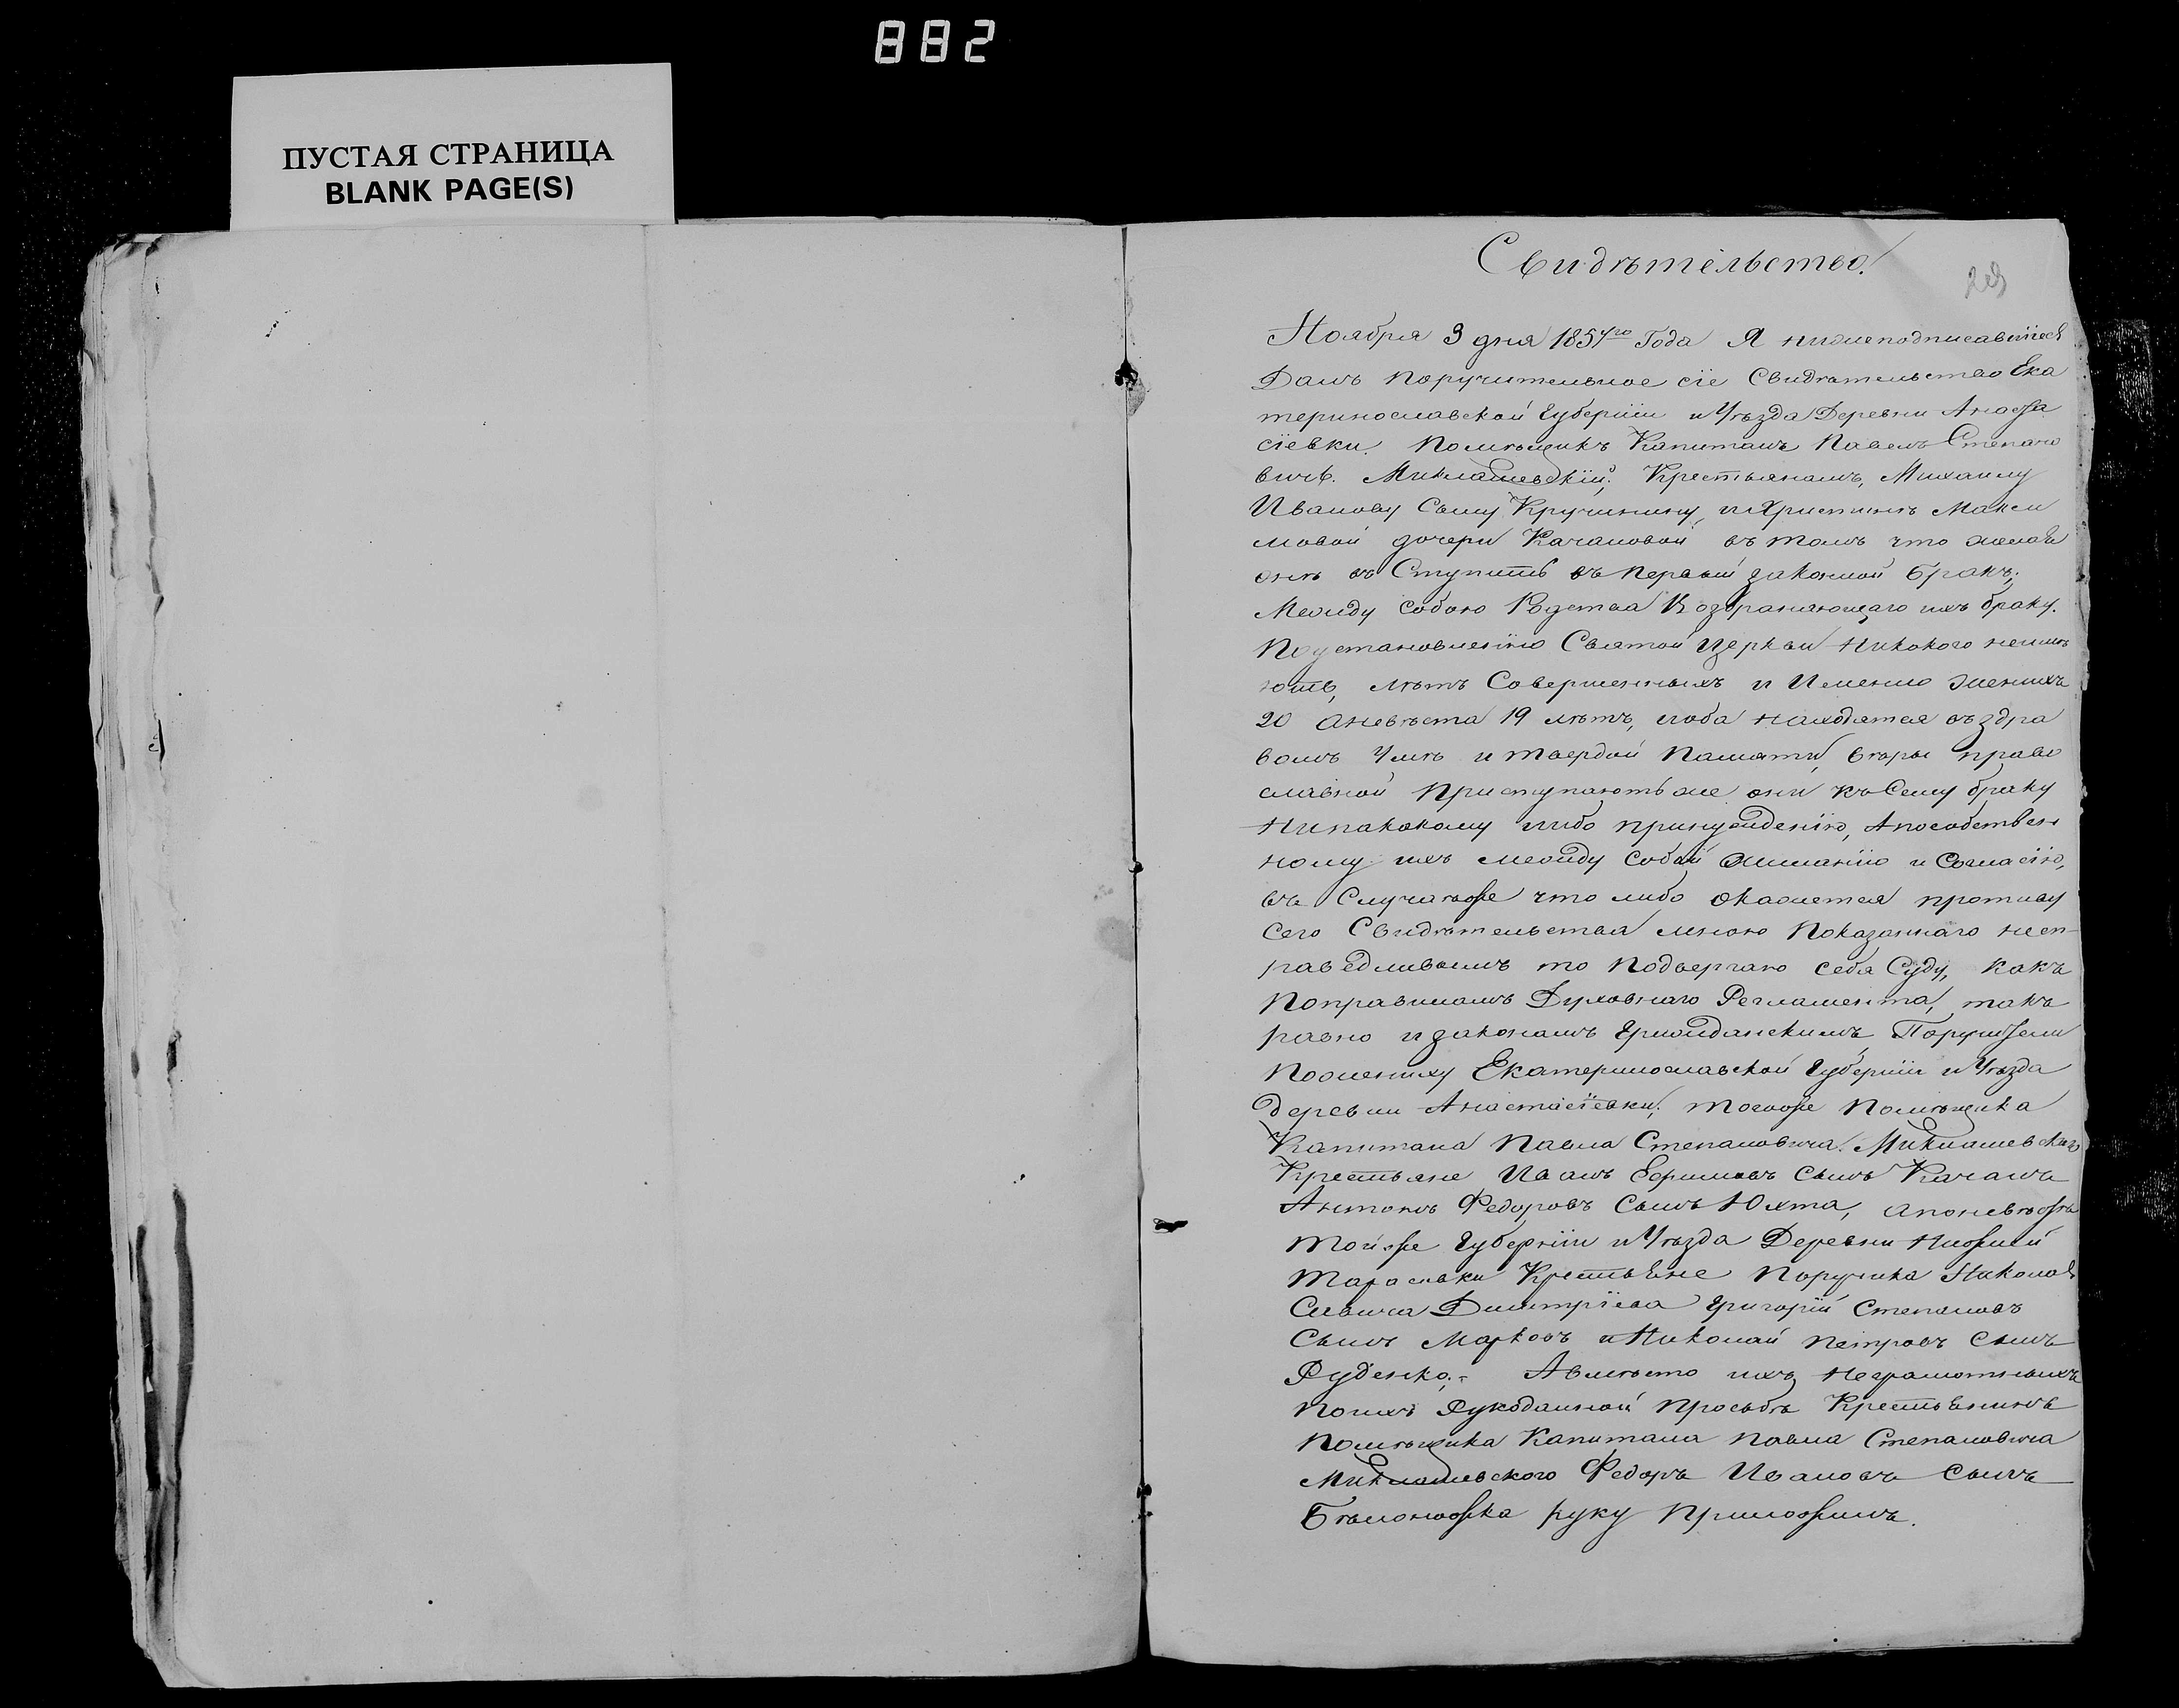 882
ПУСТАЯ СТРАНИЦА
BLANK PAGE(S)
Свидѣтельство.
Ноября 3 дня 1854го Года Я нижеподписавшійся
Далъ поручительное сіе Свидѣтельство Ека
теринославской Губерніи и Уѣзда Деревни Анаста
сіевки. Помѣщикъ Капитанъ Павелъ Степано
вичъ. Миклашевскій; Крестьянамъ, Михаилу
Иванову Сыну Кручинину, и Христинѣ Макси
мовой дочери Качановой въ томъ что желая
онѣ въ Ступить въ первый законной бракъ;
Между собою Родства Возбраняющаго ихъ браку.
По установленію Святой Церкви Никокого неимѣ
ютъ, лѣтъ Совершенныхъ и Именно женихъ
20 аневѣста 19 лѣтъ, иоба находятся въ здра
вомъ Умѣ и твердой Памяти, вѣры право
славной приступаютъ же они къ Сему браку
Нипакокому либо принужденію, Апособствен
ному ихъ между собой желанію и Согласію,
въ Случаѣже что либо окажется противу
Сего Свидѣтельства мною Показаннаго несп-
раведливымъ то подвергаю себя Суду, какъ
Поправиламъ Духовнаго Регламента, такъ
равно и законамъ Гражданскимъ Поручители
Пожениху Екатеринославской Губерніи и Уѣзда
деревни Анастасіевки; тогоже Помѣщика
Капитана Павла Степановича. Миклашевскаго
Крестьяне Иванъ Ефимовъ Сынъ Качанъ
Антонъ Федоровъ Сынъ Юхта, апоневѣстѣ
Тойже Губерніи и Уѣзда Деревни Нижней
Тарасовки Крестьяне Поручика Николая
Савича Димитріева Григорій Степановъ
Сынъ Марковъ и Николай Петровъ Сынъ
Руденко;- Авмѣсто ихъ Неграмотныхъ
Поихъ Рукоданной просьбѣ Крестьянинъ
Помѣщика Капитана Павла Степановича
Миклашевского Федоръ Ивановъ Сынъ
Бѣлоножка руку Приложилъ.